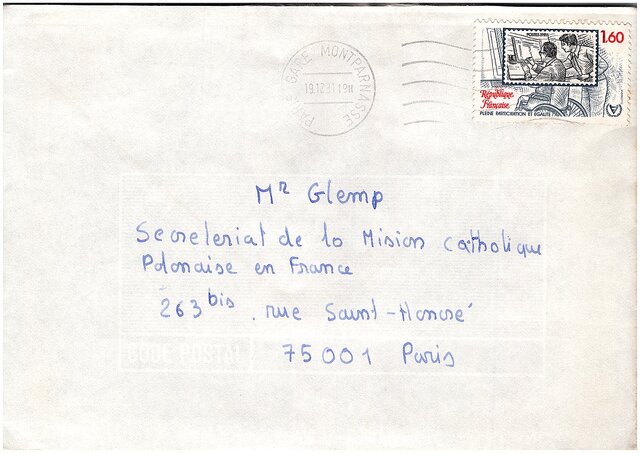 PARIS GARE MONTPARNASSE
19.12.81 19H
1.60
République
Française
PLEINE PARTICIPATION ET EGALITE
Mr Glemp
Secreleriat de la Mision catholique
Polonaise en France
263bis, rue Saint-Honoré
75001 Paris